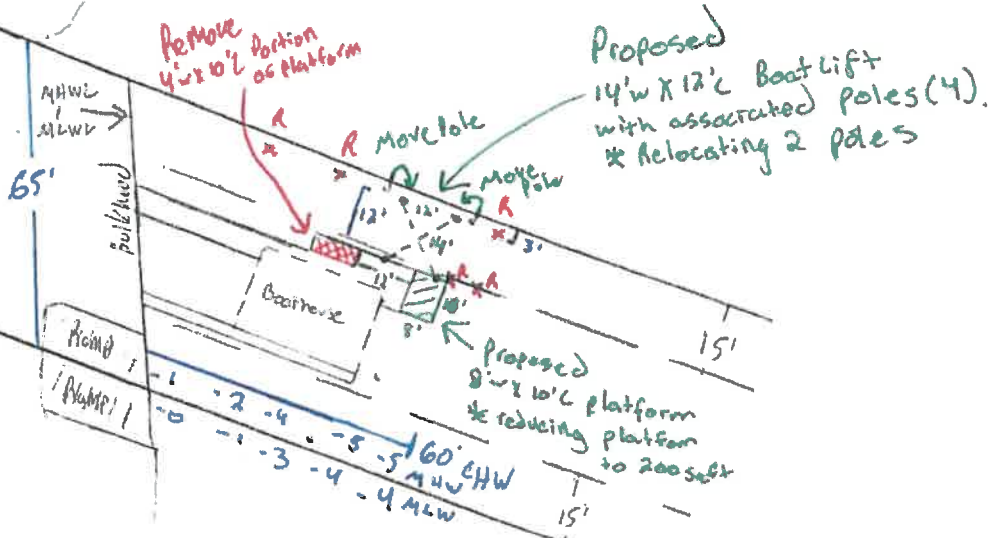 Remove
4'w x 10'L Portion
of Platform
Proposed
14'w X 12'L Boat Lift
with associated poles (4).
* Relocating 2 poles
MHWL
MLWL
65'
bulkhead
R
R
Move Pole
Move
Pole
R
12'
12'
14'
3'
12'
R
R
Boathouse
10'
8'
15'
Proposed
8'w x 10'L platform
* reducing platform
to 200 sqft
Ramp
-1 -2 -4 -5 -5 60' @HW
MHW
-0 -1 -3 -4 -4 MLW
15'